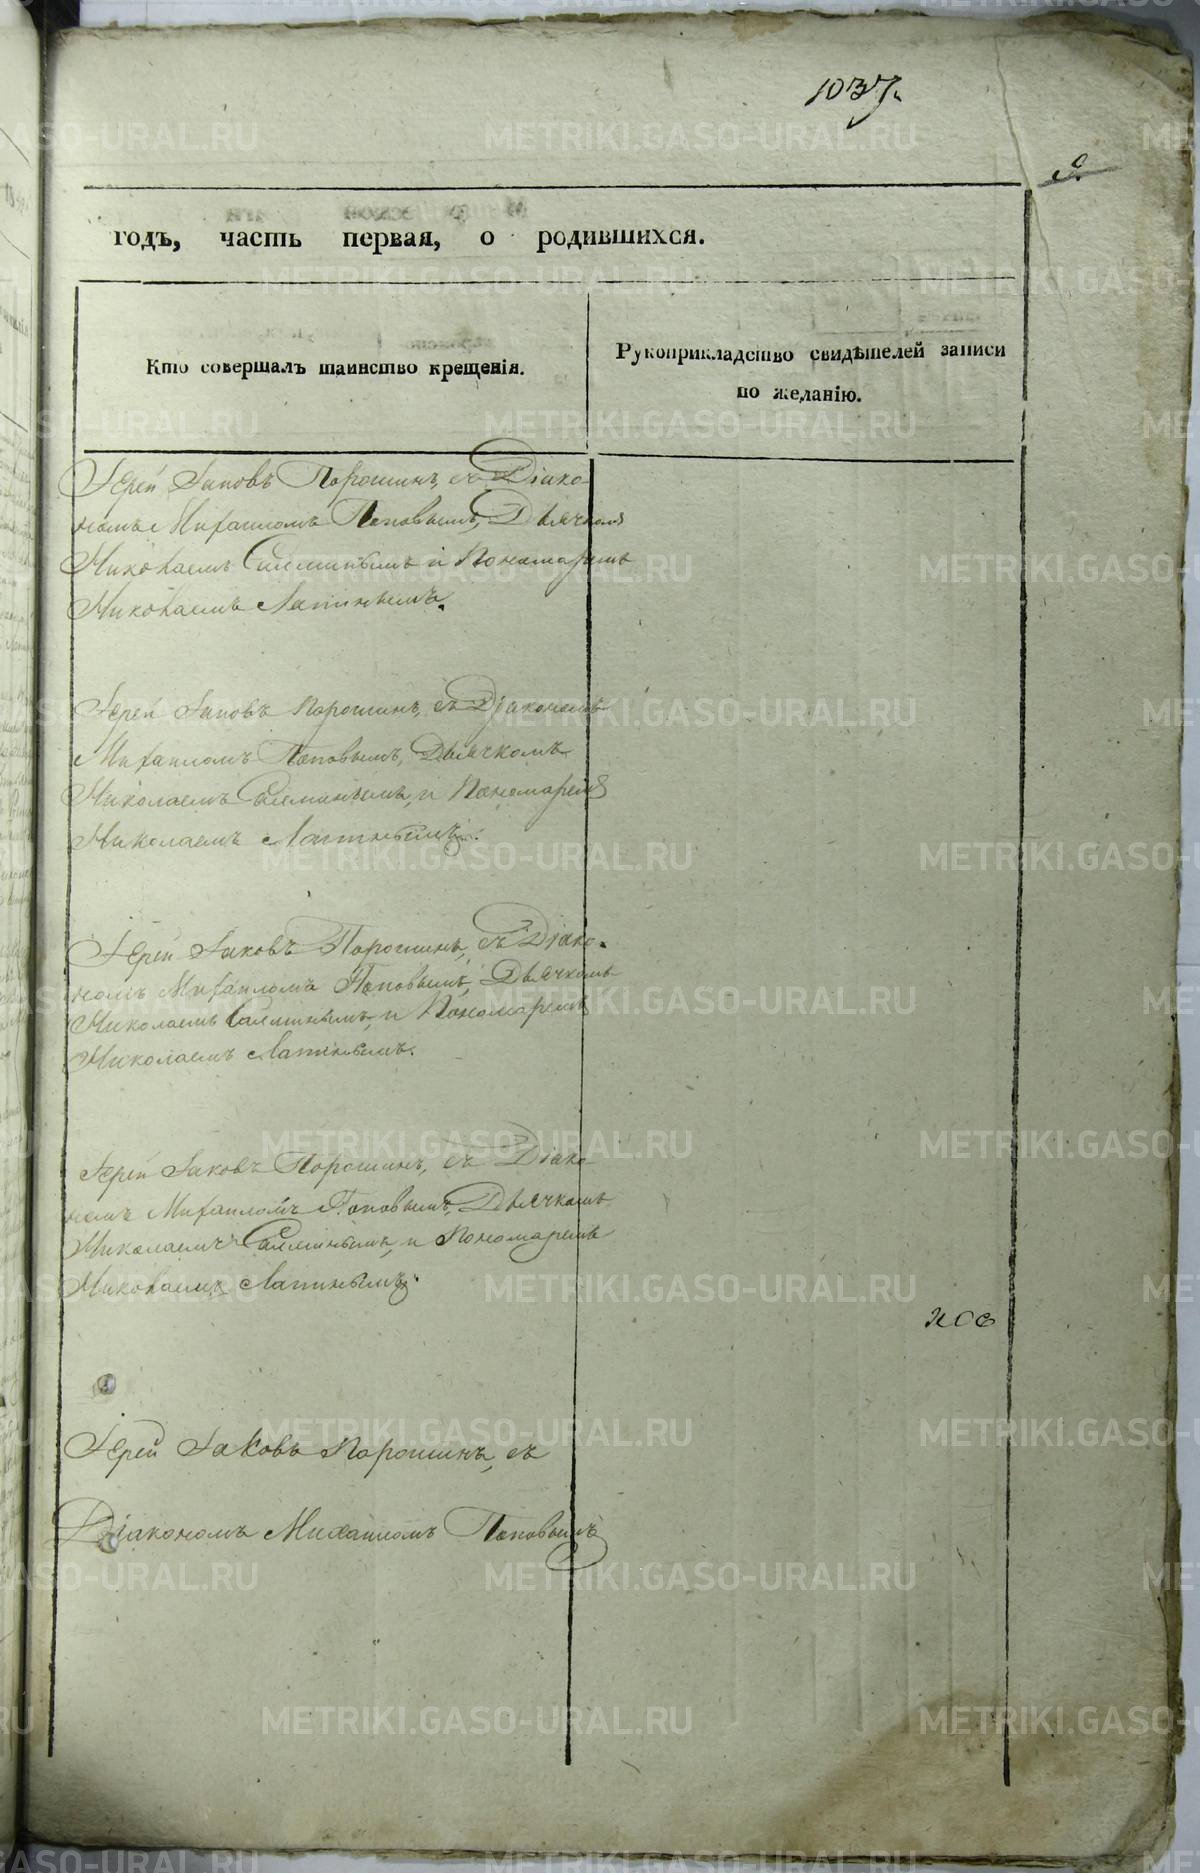 1037.
годъ, часть первая, о родившихся.
Кто совершалъ таинство крещенія.
Рукоприкладство свидѣтелей записи
по желанію.
Іерей Іаковъ Порошинъ, съ Діако-
номъ Михаиломъ Поповымъ, Дьячкомъ
Николаемъ и Пономаремъ
Николаемъ Латинымъ.
Іерей Іаковъ Порошинъ, съ Діакономъ
Михаиломъ Поповымъ, Дьячкомъ
Николаемъ и Пономаремъ
Николаемъ Латинымъ.
Іерей Іаковъ Порошинъ, съ Діако-
номъ Михаиломъ Поповымъ, Дьячкомъ
Николаемъ и Пономаремъ
Николаемъ Латинымъ.
Іерей Іаковъ Порошинъ, съ Діако-
номъ Михаиломъ Поповымъ, Дьячкомъ
Николаемъ и Пономаремъ
Николаемъ Латинымъ.
Іерей Іаковъ Порошинъ, съ
Діакономъ Михаиломъ Поповымъ
METRIKI.GASO-URAL.RU